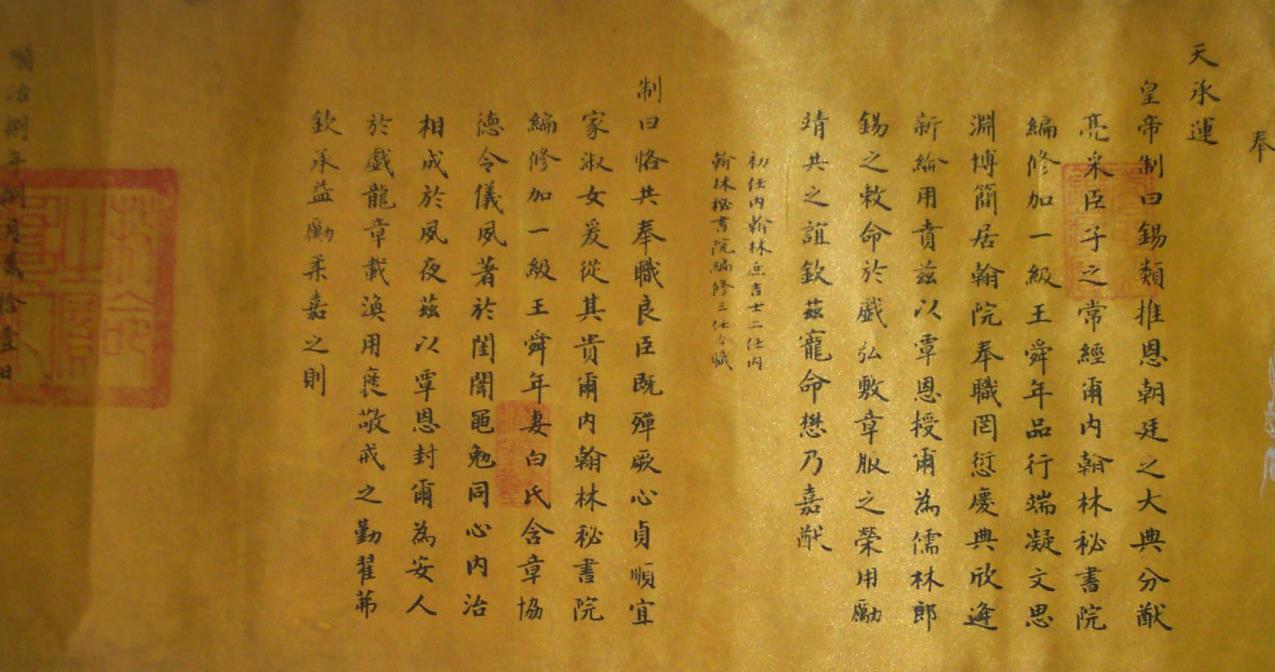 奉
天承運
皇帝制曰錫類推恩朝廷之大典分猷
亮采臣子之常經爾內翰林秘書院
編修加一級王舜年品行端凝文思
淵博簡居翰院奉職罔愆慶典欣逢
新綸用賁茲以覃恩授爾為儒林郎
錫之敕命於戲弘敷章服之榮用勵
靖共之誼欽茲寵命懋乃嘉猷
初任內翰林庶吉士二任內
翰林秘書院編修三任今職
制曰恪共奉職良臣既殫厥心貞順宜
家淑女爰從其貴爾內翰林秘書院
編修加一級王舜年妻白氏含章協
德令儀夙著於閨闈黽勉同心內治
相成於夙夜茲以覃恩封爾為安人
於戲龍章載渙用褒敬戒之勤翟茀
欽承益勵柔嘉之則
順治捌年捌月貳拾壹日